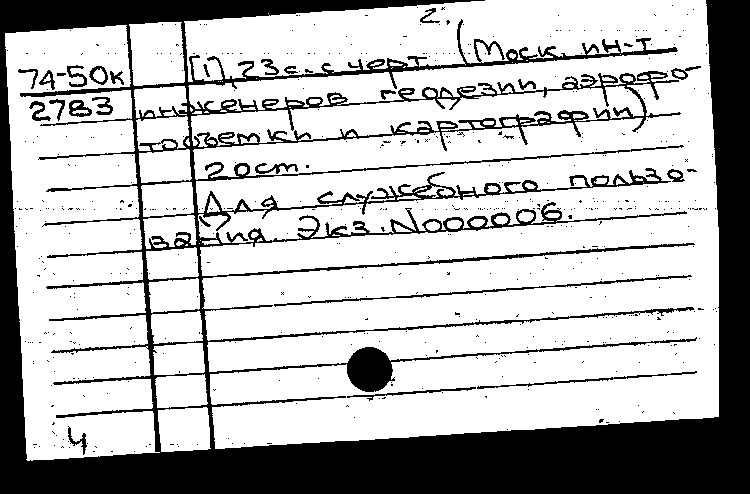 2.
74-50к [1], 23 с. с черт. (Моск. ин-т
2783 инженеров геодезии, аэрофо-
тосъемки и картографии).
20ст.
Для служебного пользо-
вания. Экз. N000006.
4